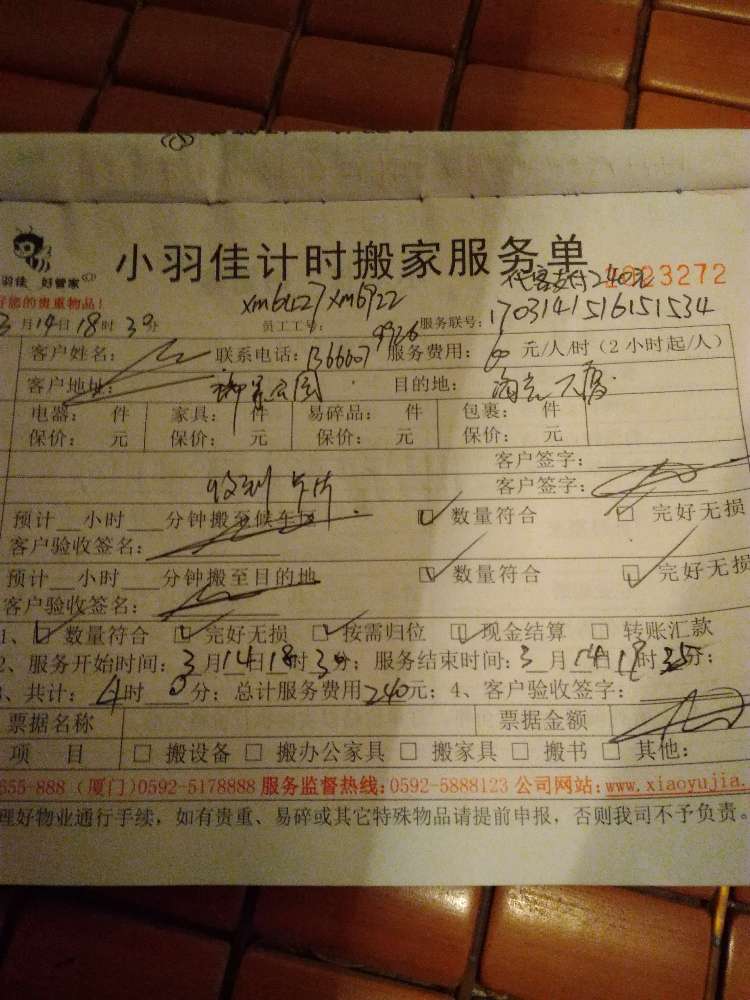 小羽佳计时搬家服务单
羽佳 好管家
好您的贵重物品！
代客支付240元
1023272
3月14日18时30分 员工工号：xm6427xm6922 服务联号：1703141516151534
客户姓名： 联系电话：1366607 9926 服务费用：60元/人/时（2小时起/人）
客户地址： 公园 目的地： 大厦
电器： 件 家具： 件 易碎品： 件 包裹： 件
保价： 元 保价： 元 保价： 元 保价： 元
客户签字：
收到 卡片 客户签字：
预计 小时 分钟搬至候车 数量符合 完好无损
客户验收签名：
预计 小时 分钟搬至目的地 数量符合 完好无损
客户验收签名：
1、 数量符合 完好无损 按需归位 现金结算 转账汇款
2、服务开始时间：3月14日18时3分；服务结束时间：3月14日18时35分；
3、共计：4时0分；总计服务费用240元；4、客户验收签字：
票据名称 票据金额
项 目 搬设备 搬办公家具 搬家具 搬书 其他：
655-888（厦门）0592-5178888 服务监督热线：0592-5888123 公司网站：www.xiaoyujia.
理好物业通行手续，如有贵重、易碎或其它特殊物品请提前申报，否则我司不予负责。